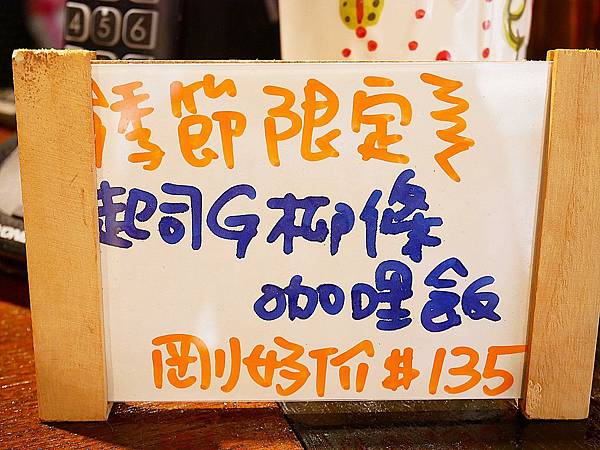 4 5 6
季節限定
起司G柳條
咖哩飯
剛好价#135